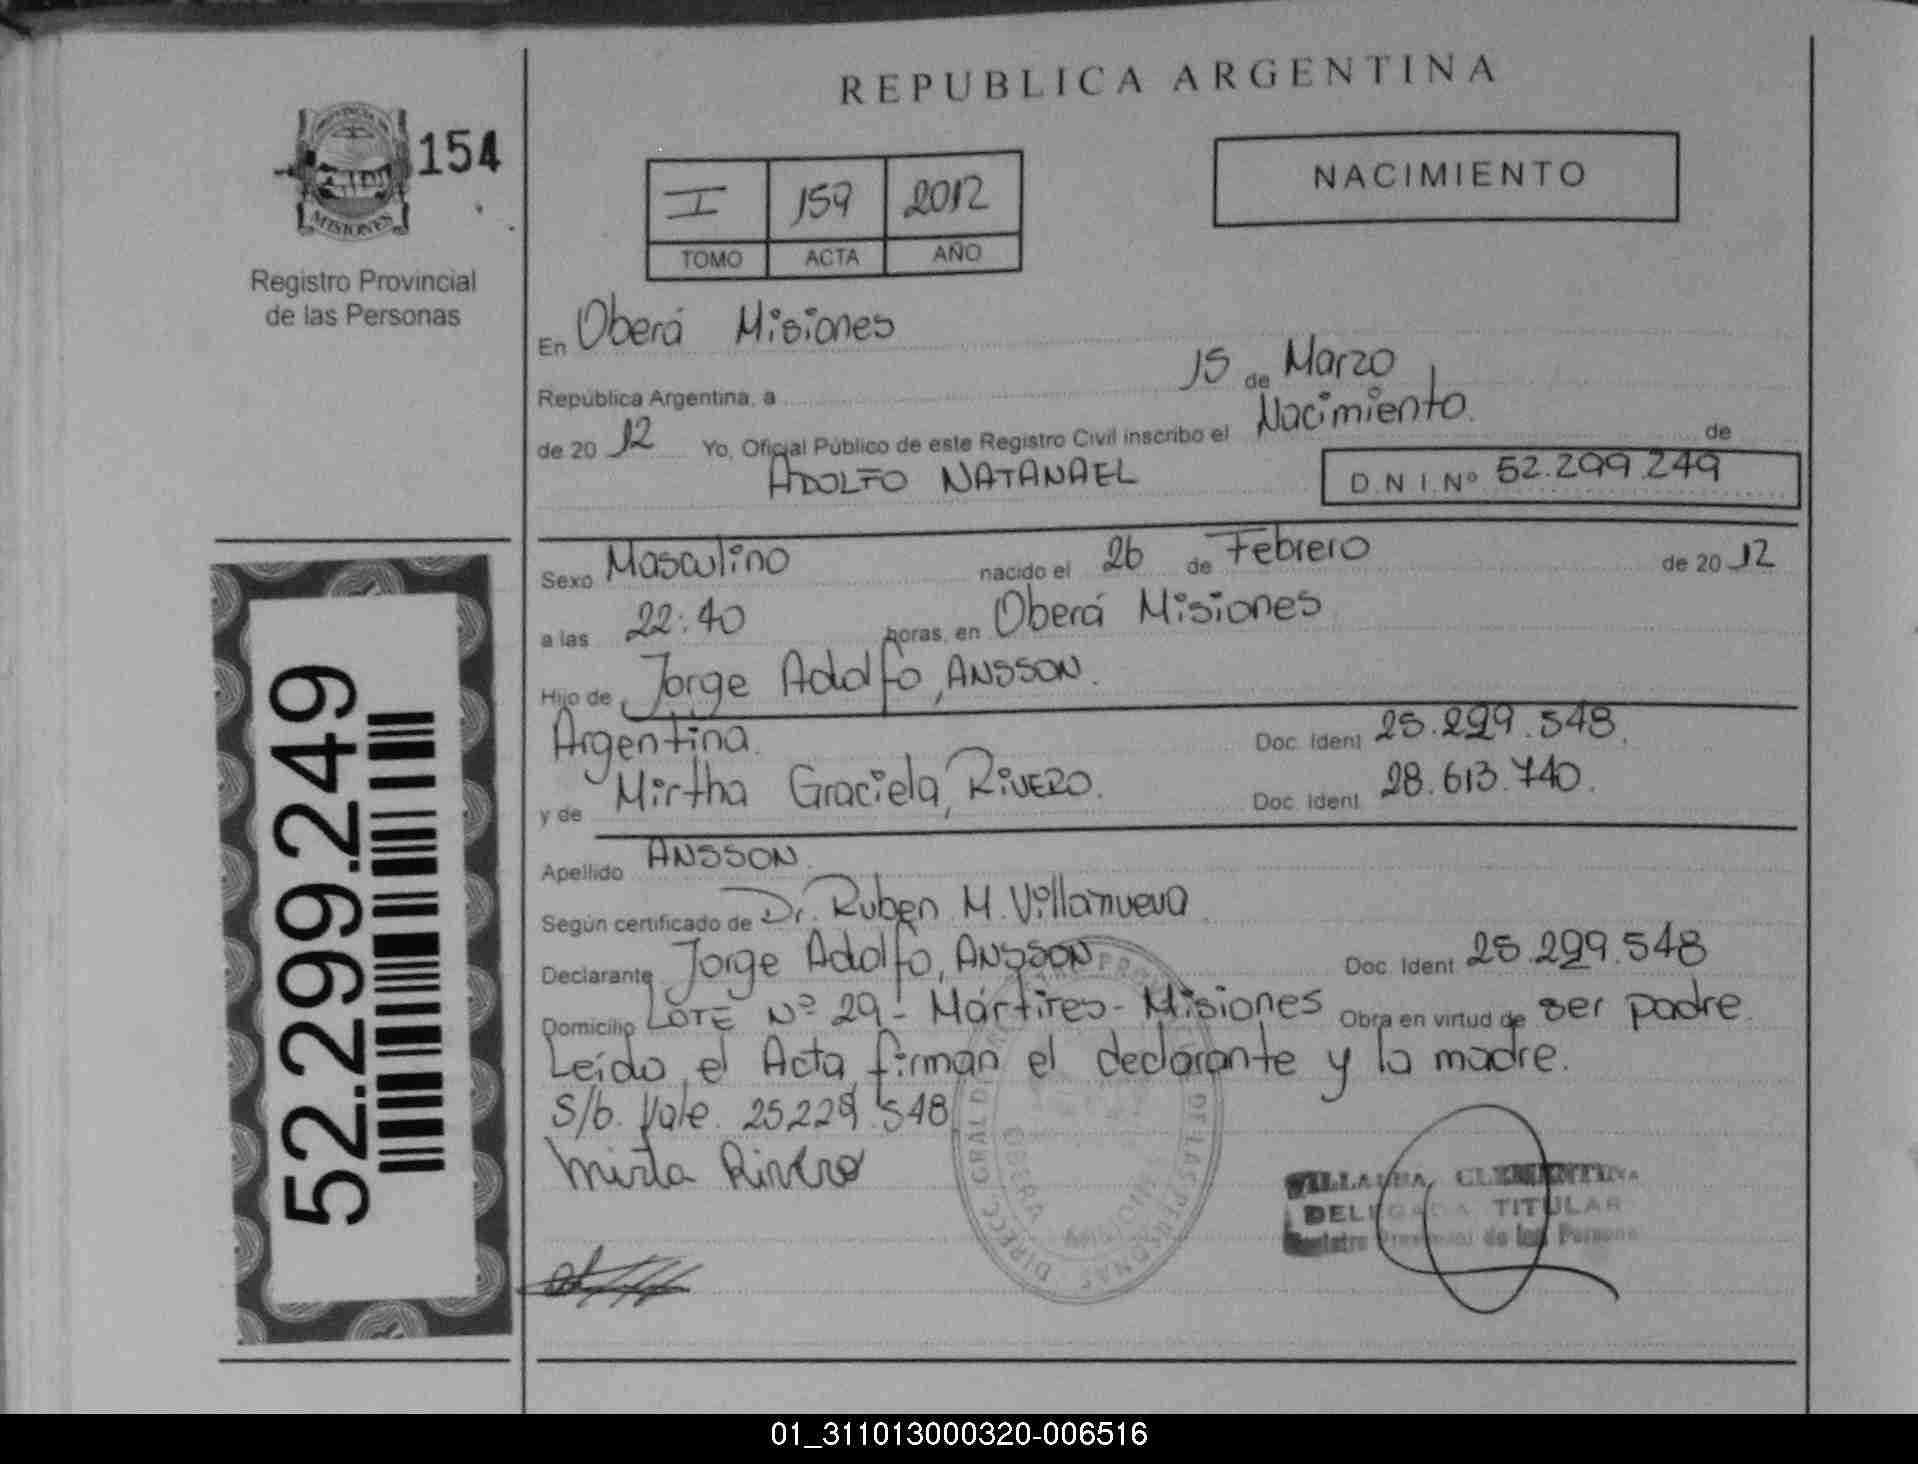 REPUBLICA ARGENTINA
MISIONES
154
Registro Provincial
de las Personas
I 159 2012
TOMO ACTA AÑO
NACIMIENTO
En Oberá Misiones
República Argentina, a 15 de Marzo
de 20 12 Yo, Oficial Público de este Registro Civil inscribo el Nacimiento. de
ADOLFO NATANAEL
D.N.I.Nº 52.299.249
Sexo Masculino nacido el 26 de Febrero de 20 12
a las 22:40 horas, en Oberá Misiones
Hijo de Jorge Adolfo, ANSSON.
Argentina. Doc. Ident 25.229.548.
y de Mirtha Graciela, RIVERO. Doc. Ident. 28.613.740.
Apellido ANSSON.
Según certificado de Dr. Ruben M. Villanueva
Declarante Jorge Adolfo, ANSSON Doc. Ident. 25.229.548
Domicilio LOTE Nº 29 - Mártires - Misiones Obra en virtud de ser padre.
Leído el Acta, firman el declarante y la madre.
S/b. Vale. 25.229.548
Mirta Rivero
VILLALBA, CLEMENTINA
DELEGADA TITULAR
Registro Provincial de las Personas
52.299.249
01_311013000320-006516